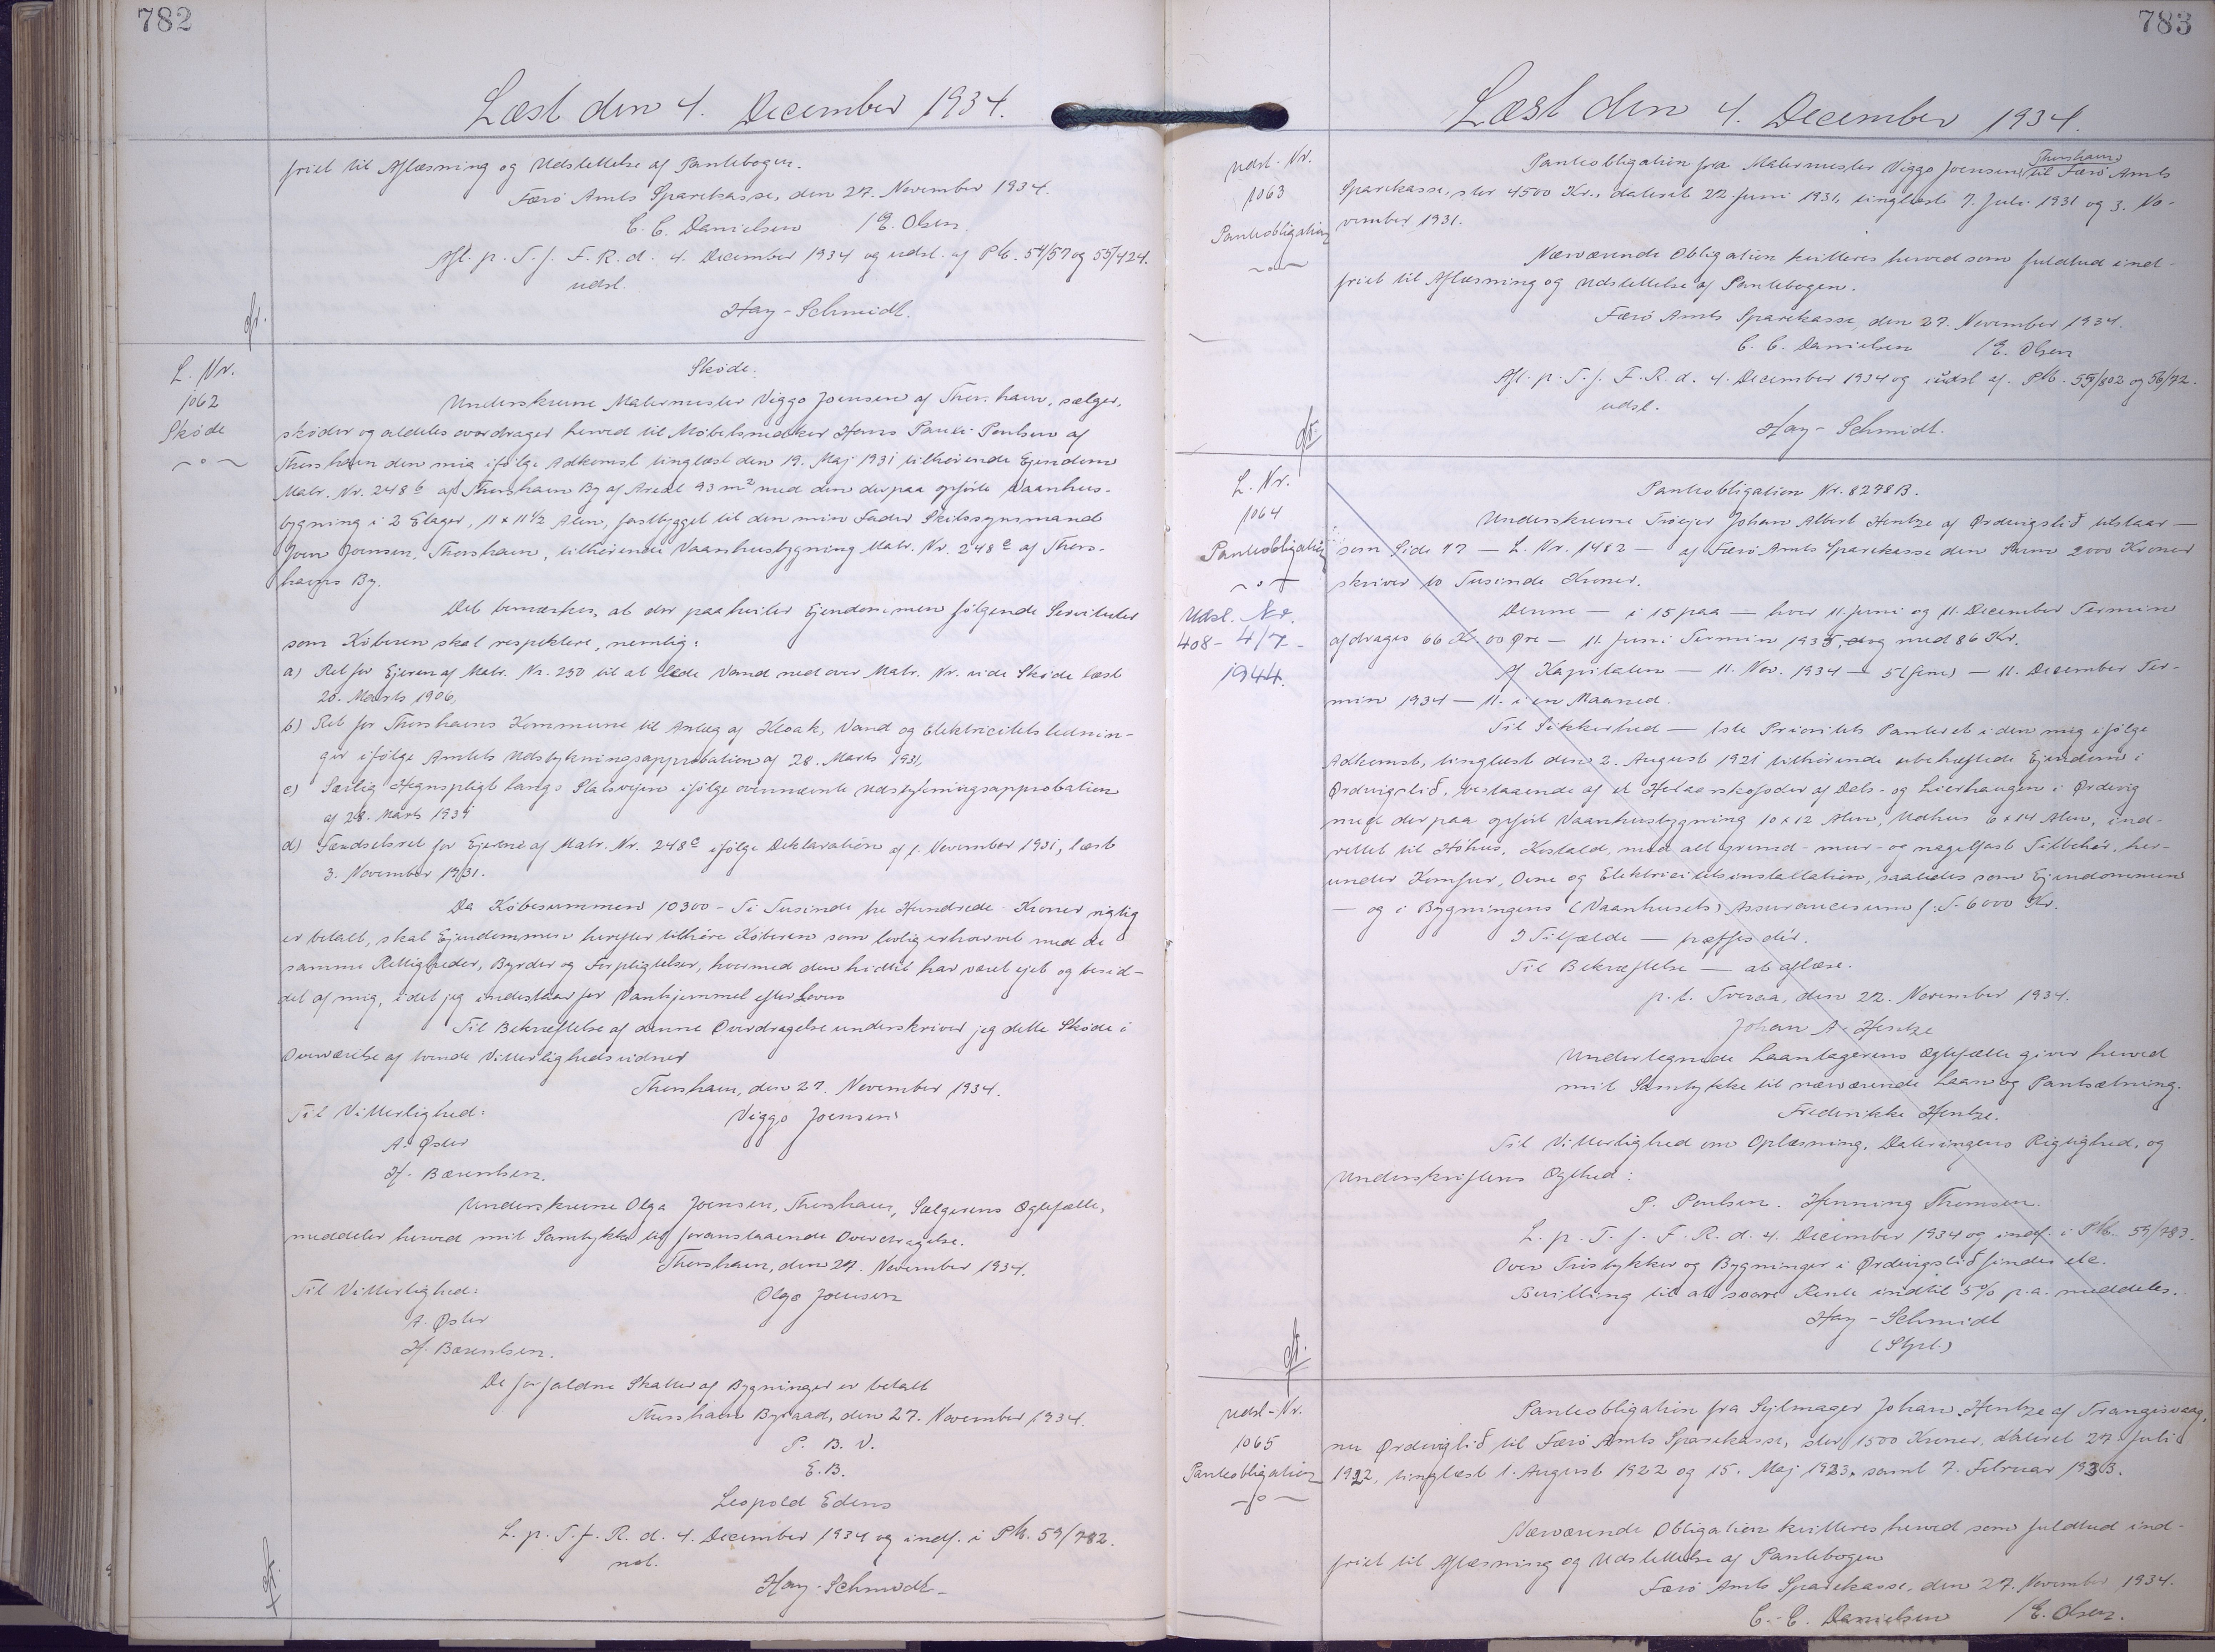 782
Læst den 4. December 1934.
friet til Aflæsning og Udslettelse af Pantebogen.
Færø Amts Sparekasse, den 27. November 1934.
C. C. Danielsen / E. Olsen.
Afl. p. T. f. F. R. d. 4. December 1934 og udsl. af Pb. 54/57 og 55/424.
udsl.
Hay-Schmidt.
L. Nr.
1062
Skøde
Skøde.
Underskrevne Malermester Viggo Joensen af Thorshavn, sælger,
skøder og aldeles overdrager herved til Møbelsnedker Hans Pauli Poulsen af
Thorshavn den mig ifølge Adkomst tinglæst den 19. Maj 1931 tilhørende Ejendom
Matr. Nr. 248 b af Thorshavn By af Areal 93 m² med den derpaa opførte Vaanhus-
bygning i 2 Etager, 11 x 11 1/2 Alen, fastbygget til den min Fader Skibssynsmand
Joen Joensen, Thorshavn, tilhørende Vaanhusbygning Matr. Nr. 248 c af Thors-
havns By.
Det bemærkes, at der paahviler Ejendommen følgende Servituter
som Køberen skal respektere, nemlig:
a) Ret for Ejeren af Matr. Nr. 250 til at lede Vand ned over Matr. Nr. vide Skøde læst
20. Marts 1906,
b) Ret for Thorshavns Kommune til Anlæg af Kloak, Vand og Elektricitetslednin-
ger ifølge Amtets Udstykningsapprobation af 28. Marts 1931,
c) Særlig Hegnspligt langs Statsvejen ifølge ovennævnte Udstykningsapprobation
af 28. Marts 1931
d) Færdselsret for Ejerne af Matr. Nr. 248 c ifølge Deklaration af 1. November 1931, læst
3. November 1931.
Da Købesummen 10300 - Ti Tusinde tre Hundrede - Kroner rigtig
er betalt, skal Ejendommen herefter tilhøre Køberen som lovlig erhvervet med de
samme Rettigheder, Byrder og Forpligtelser, hvormed den hidtil har været ejet og besid-
det af mig, idet jeg indestaar for Vanhjemmel efter Loven
Til Bekræftelse af denne Overdragelse underskriver jeg dette Skøde i
Overværelse af tvende Vitterlighedsvidner
Thorshavn, den 27. November 1934.
Til Vitterlighed: Viggo Joensen
A. Øster
H. Bærentsen.
Underskrevne Olga Joensen, Thorshavn, Sælgerens Ægtefælle,
meddeler herved mit Samtykke til foranstaaende Overdragelse.
Thorshavn, den 27. November 1934.
Til Vitterlighed: Olga Joensen
A. Øster
H. Bærentsen.
De forfaldne Skatter af Bygninger er betalt
Thorshavn Byraad, den 27. November 1934.
P. B. V.
E.B.
Leopold Edens
L. p. T. f. R. d. 4. December 1934 og indf. i Pb. 59/782.
not.
Hay-Schmidt-
783
Læst den 4. December 1934.
Udsl. Nr.
1063
Panteobligation
Panteobligation fra Malermester Viggo Joensen, Thorshavn til Færø Amts
Sparekasse, stor 4500 Kr., dateret 22. Juni 1931, tinglæst 7. Juli 1931 og 3. No-
vember 1931.
Nærværende Obligation kvitteres herved som fuldtud ind-
friet til Aflæsning og Udslettelse af Pantebogen.
Færø Amts Sparekasse, den 27. November 1934.
C. C. Danielsen / E. Olsen
Afl. p. T. f. F. R. d. 4. December 1934 og udsl. af Pb. 55/802 og 56/72.
udsl.
Hay-Schmidt.
L. Nr.
1064
Panteobligation
Udsl. Nr.
408 - 4/7 -
1944.
Panteobligation Nr. 8278 B.
Underskrevne Trøejer Johan Albert Hentze af Ørdevigslið tilstaar —
som Side 17 — L. Nr. 1482 — af Færø Amts Sparekasse den Sum 2000 Kroner
skriver to Tusinde Kroner.
Denne — i 15 paa — hver 11. Juni og 11. December Termin
afdrages 66 Kr. 00 Øre — 11. Juni Termin 1935, dog med 86 Kr.
Af Kapitalen — 11. Nov. 1934 — 5 (fem) — 11. December Ter-
min 1934 — 11. i en Maaned.
Til Sikkerhed — 1ste Prioritets Panteret i den mig ifølge
Adkomst, tinglæst den 2. August 1921 tilhørende ubehæftede Ejendom i
Ørdevigslið, bestaaende af et Helaarskofoder af Dals- og Lierhaugen i Ørdevig
med derpaa opført Vaanhusbygning 10 x 12 Alen, Udhus 6 x 14 Alen, ind-
rettet til Høhus, Kostald, med alt grund- mur- og nagelfast Tilbehør, her-
under Komfur, Ovne og Elektricitetsinstallation, saaledes som Ejendommen
— og i Bygningens (Vaanhusets) Assurancesum f. T. 6000 Kr.
I Tilfælde — træffes dér.
Til Bekræftelse — at aflæse.
p. t. Tveraa, den 22. November 1934.
Johan A. Hentze
Undertegnede Laantagerens Ægtefælle giver herved
mit Samtykke til nærværende Laan og Pantsætning.
Frederikke Hentze.
Til Vitterlighed om Oplæsning, Dateringens Rigtighed, og
Underskriftens Ægthed:
P. Poulsen. Henning Thomsen.
L. p. T. f. F. R. d. 4. December 1934 og indf. i Pb. 59/783.
Over Trøstykker og Bygninger i Ørdevigslið findes etc.
Bevilling til at svare Rente indtil 5% p.a. meddeles.
Hay-Schmidt
(Stpl.)
Udsl-Nr.
1065
Panteobligation
Panteobligation fra Sejlmager Johan Hentze af Trangisvaag,
nu Ørdevigslið til Færø Amts Sparekasse, stor 1500 Kroner, dateret 27. Juli
1922, tinglæst 1. August 1922 og 15. Maj 1923, samt 7. Februar 1933.
Nærværende Obligation kvitteres herved som fuldtud ind-
friet til Aflæsning og Udslettelse af Pantebogen
Færø Amts Sparekasse, den 27. November 1934.
C. C. Danielsen / E. Olsen.